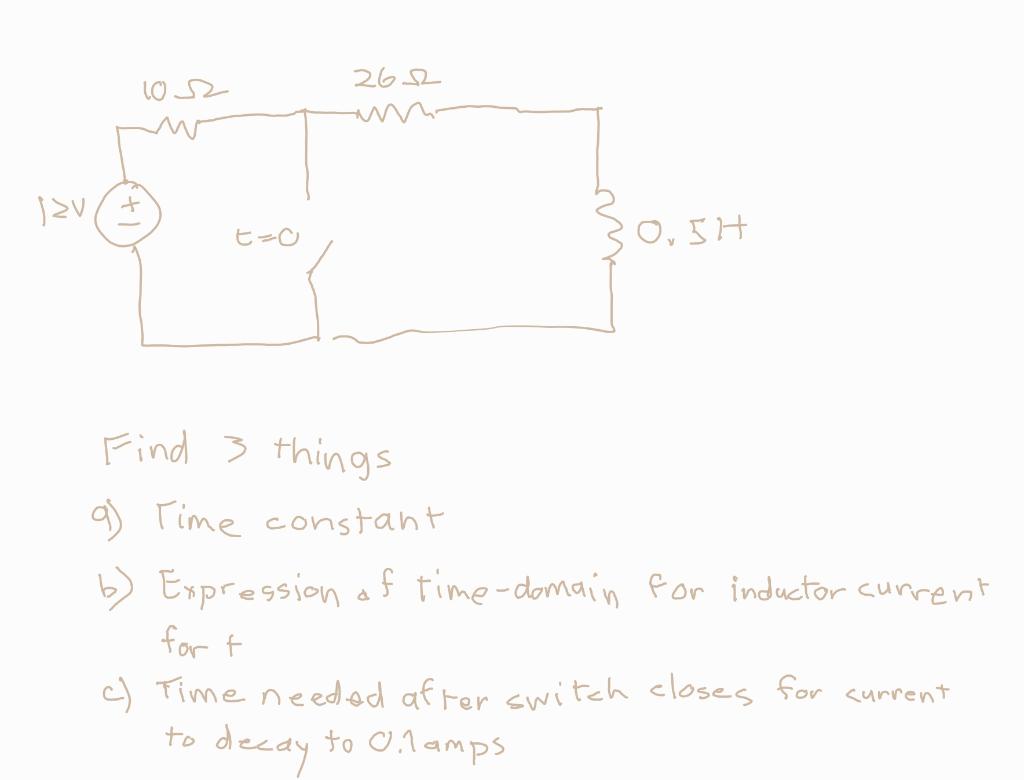 10Ω 26Ω
12V + −
t=0 0.5H
Find 3 things
a) Time constant
b) Expression of time-domain for inductor current
for t
c) Time needed after switch closes for current
to decay to 0.1amps